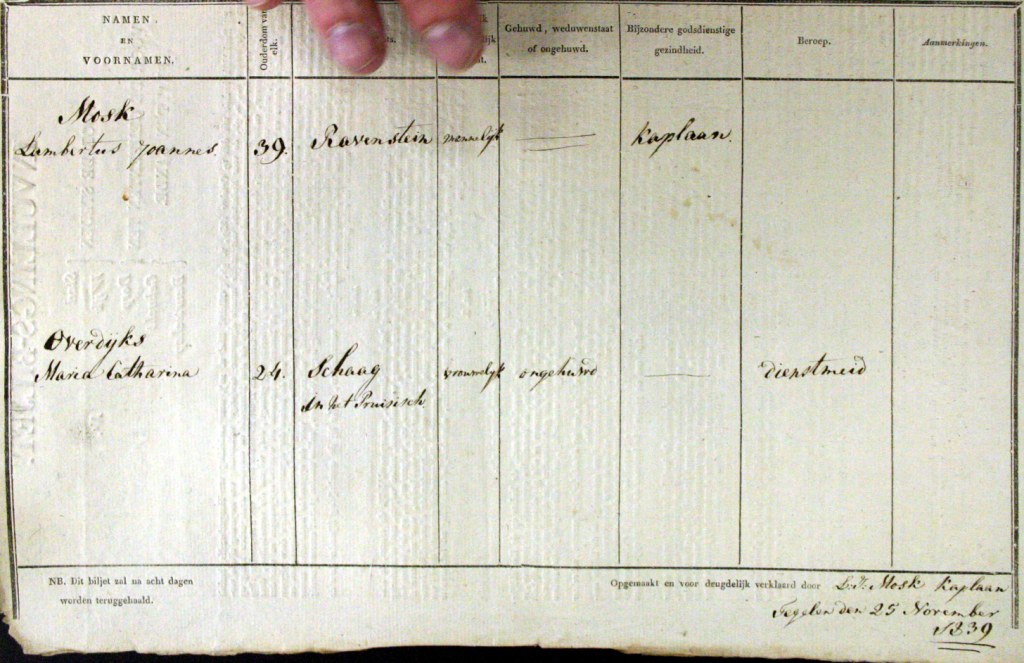 NAMEN
EN
VOORNAMEN.
Ouderdom van
elk.
Gehuwd, weduwenstaat
of ongehuwd.
Bijzondere godsdienstige
gezindheid.
Beroep.
Aanmerkingen.
Mosk
Lambertus Joannes.
39.
Ravenstein
mannelyk
kaplaan.
Overdÿks
Maria Catharina
24.
Schaag
in het Pruisisch.
vrouwelyk
ongehuwd
dienstmeid
NB. Dit biljet zal na acht dagen
worden teruggehaald.
Opgemaakt en voor deugdelijk verklaard door L. J. Mosk Kaplaan
Tegelen den 25 November
1839